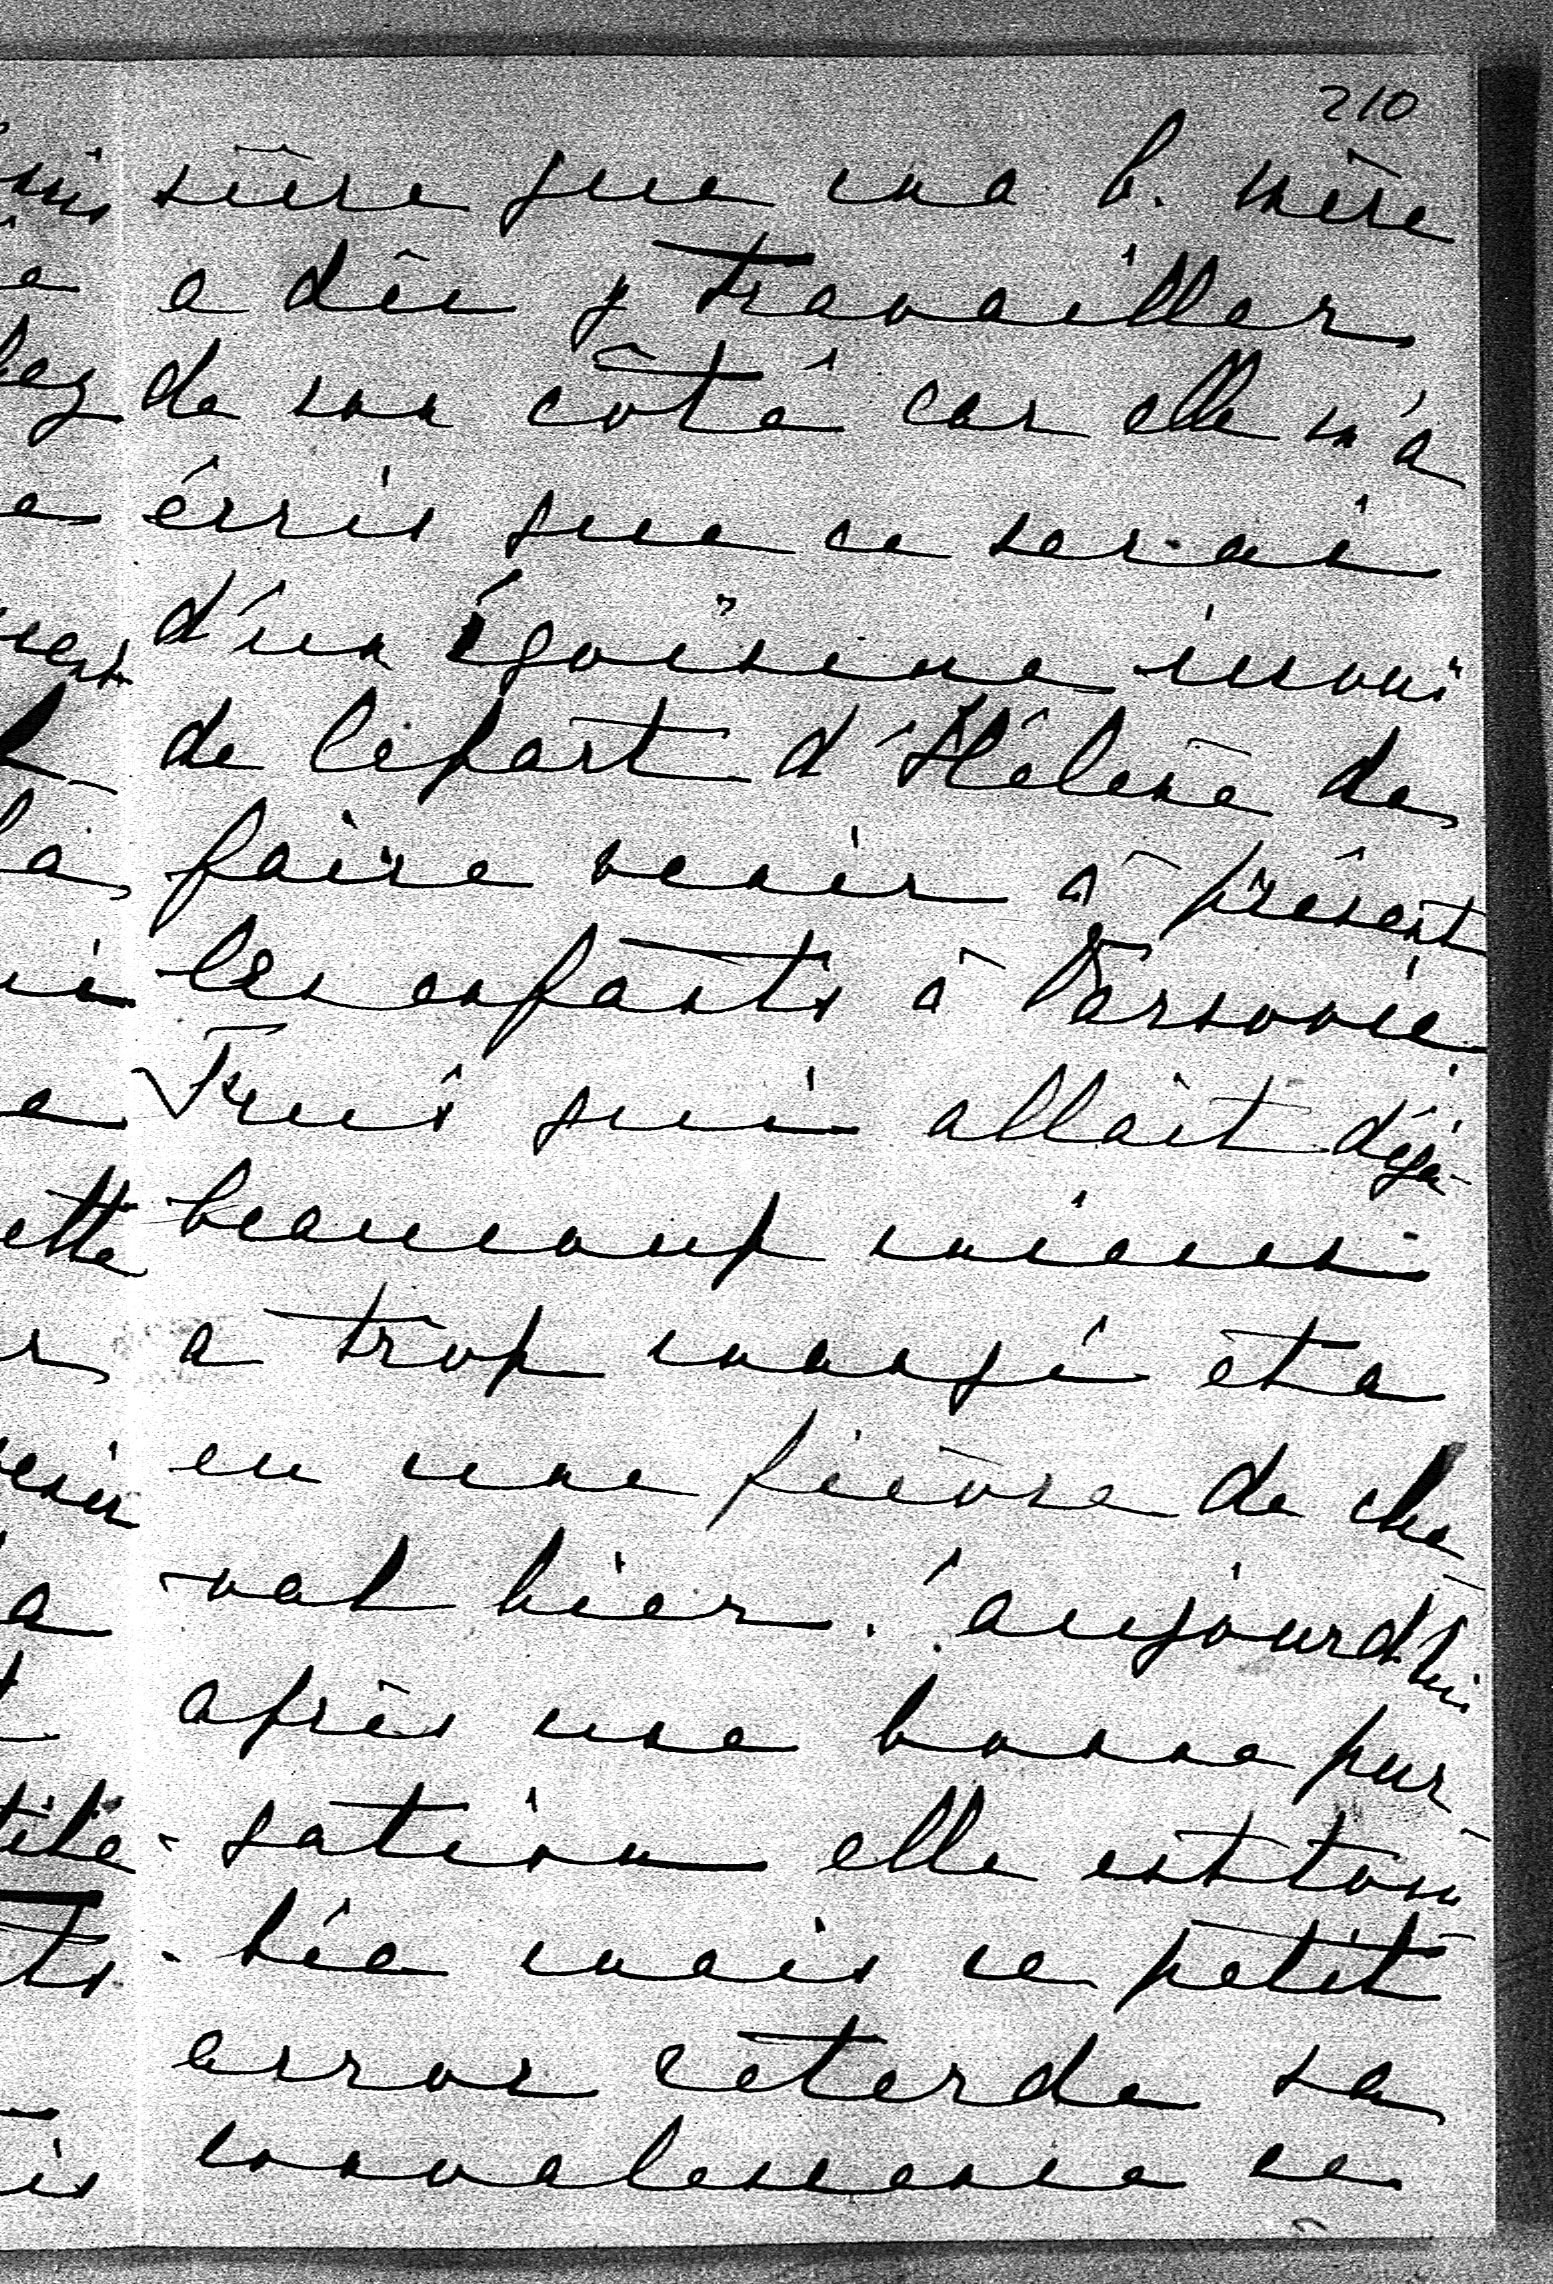 210
sûre que ma b. mère
a dû y travailler
de son côté car elle m'a
écris que ce serai
d'un égoïsme inouï
de le part d'Hélène de
faire venir à présent
les enfants à Varsovie
qui allait déja
beaucoup mieux
a trop mangé et a
eu une fièvre de che
val hier. aujourd'hui
après une bonne pur
gation elle est tom
bée mais ce petit
error retarde sa
convalescence ce